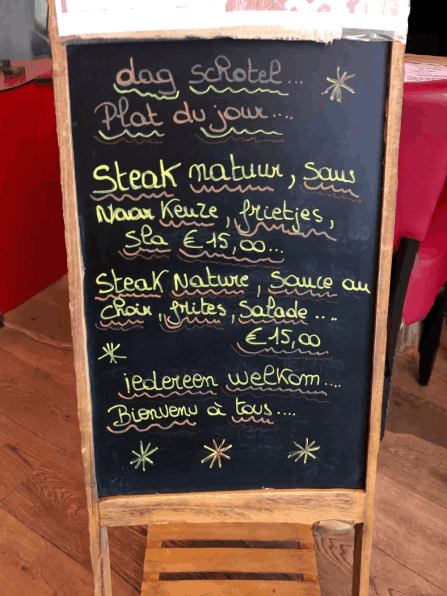 dag schotel...
Plat du jour....
Steak natuur, saus
Naar Keuze, frietjes,
Sla €15,00...
Steak Nature, Sauce au
choix, frites, Salade....
€15,00
iedereen welkom....
Bienvenu à tous....